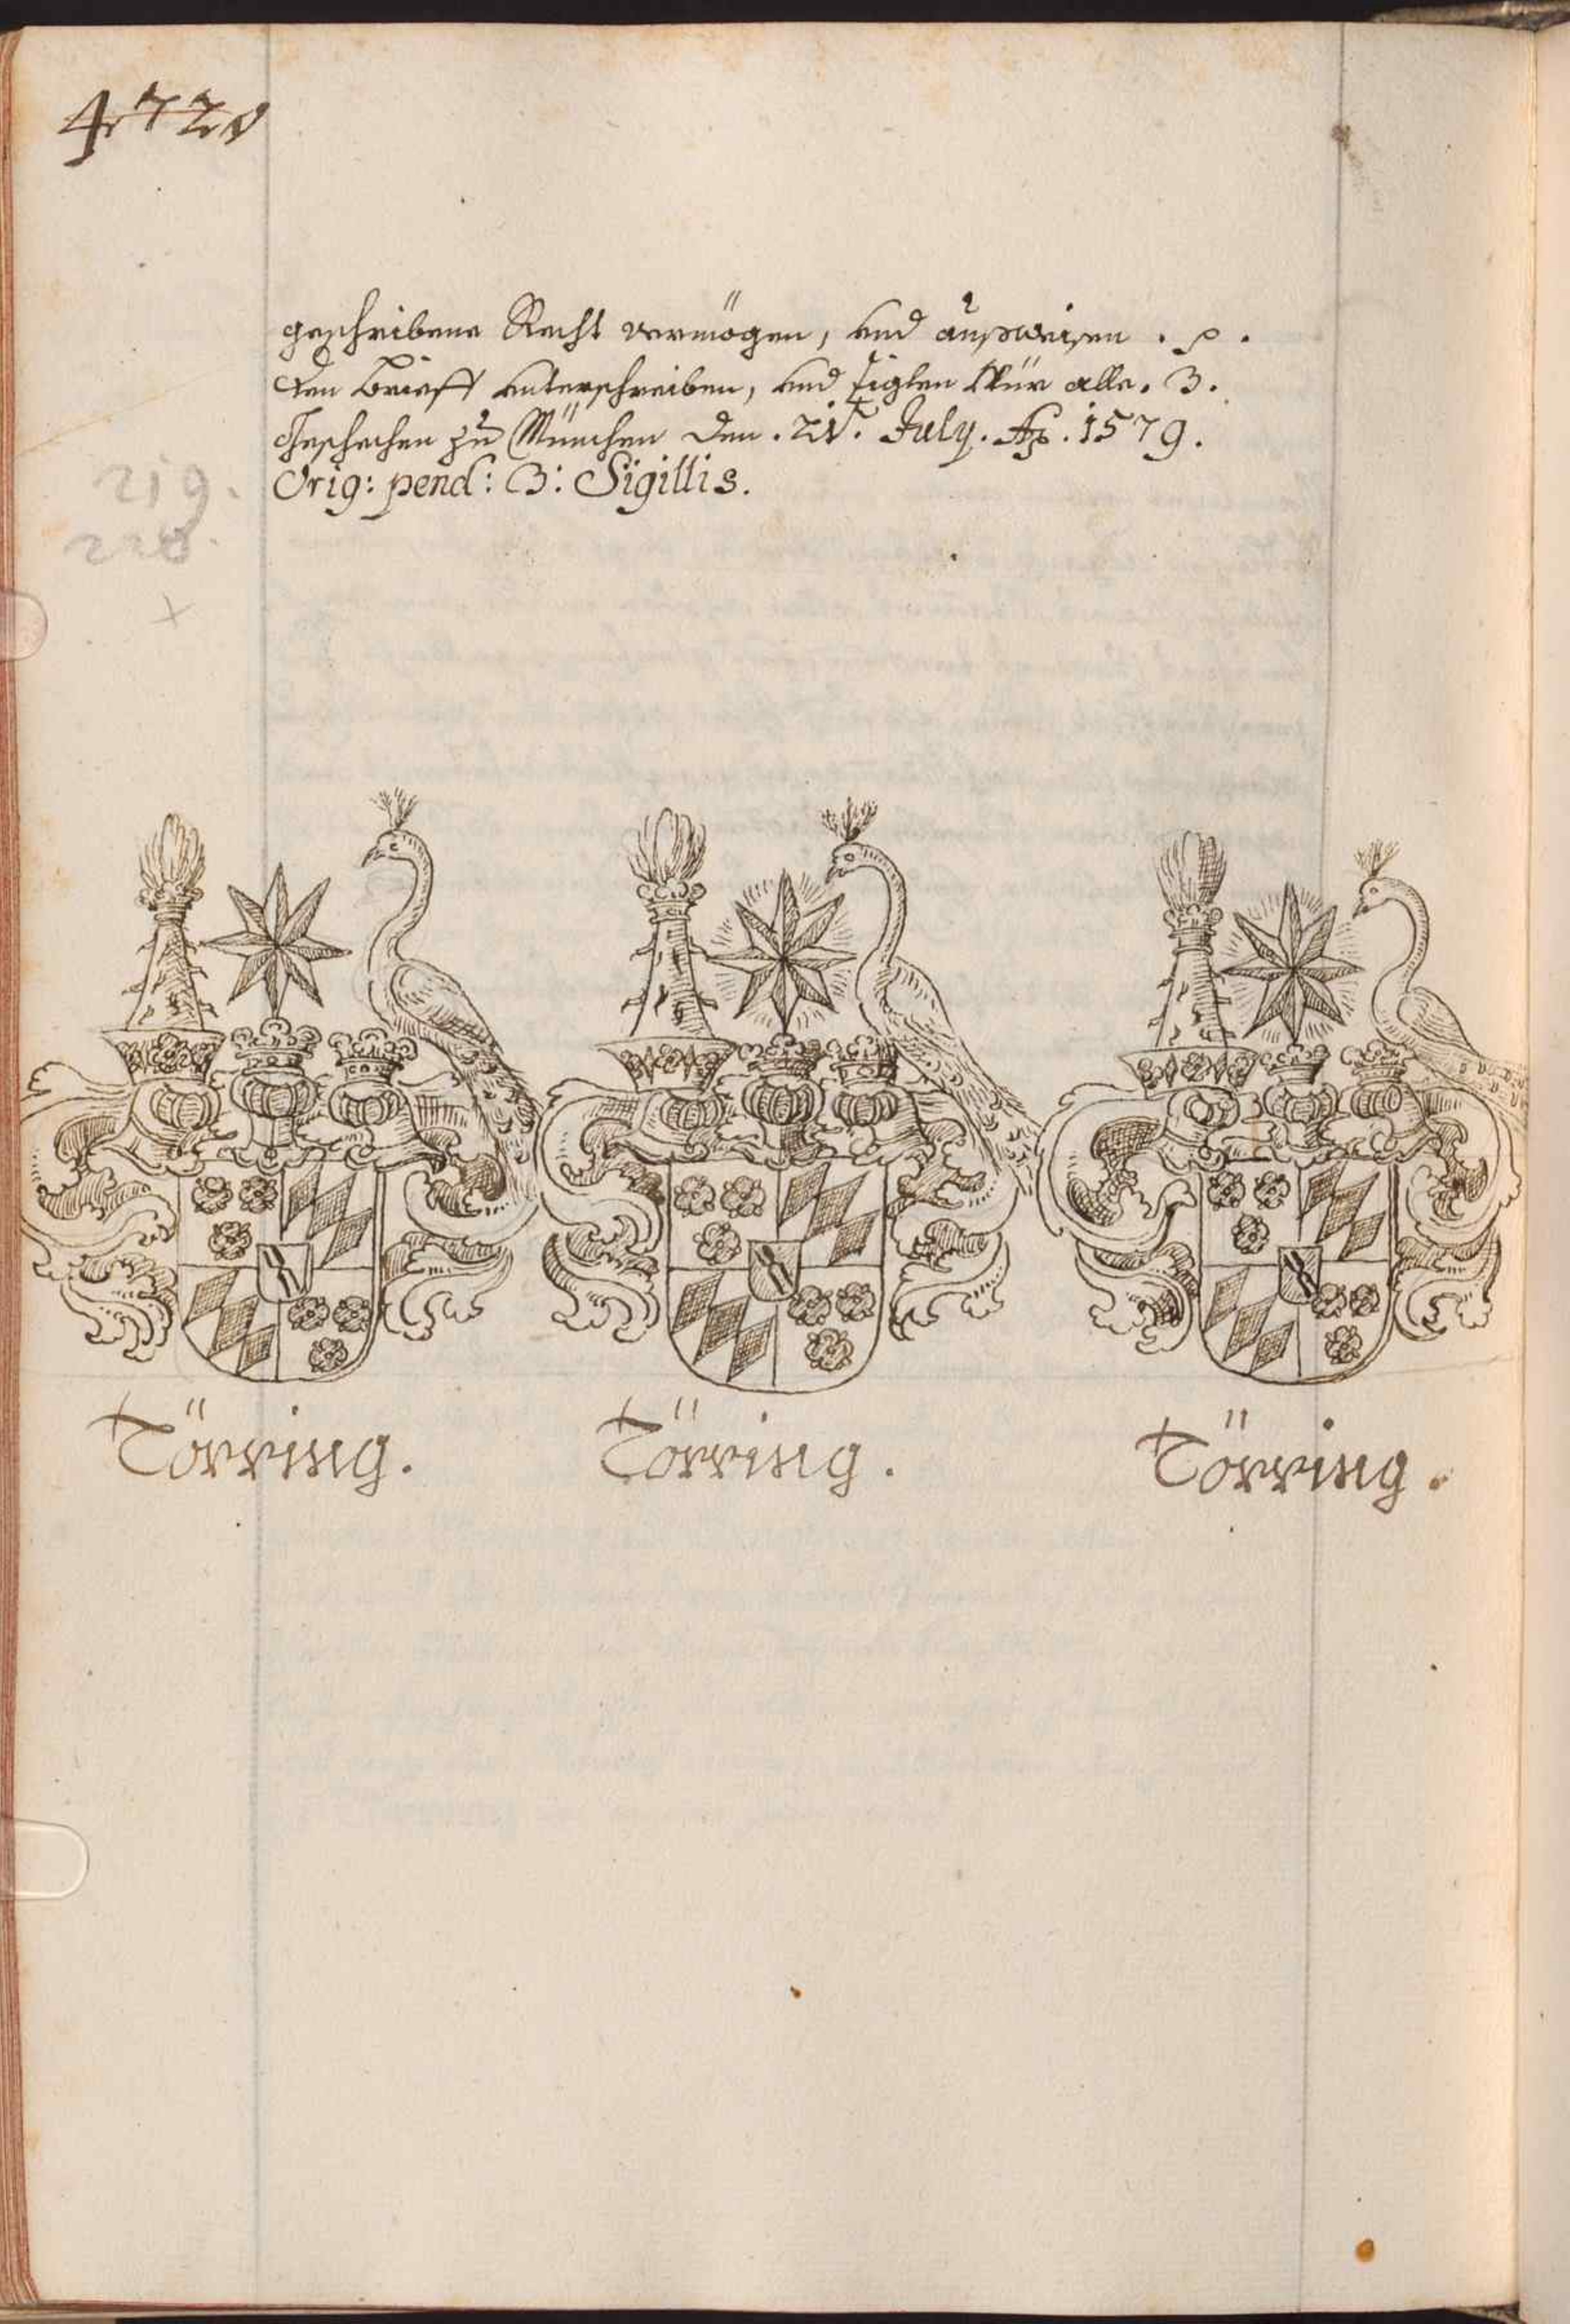 472v
geschribene Recht vermögen, vnd außweisen .p.
Den Brieff vnterschreiben, vnd siglen Wür alle .3.
Geschechen zu München den .21. July. Ao. 1579.
Orig: pend: 3: Sigillis.
219.
220.
Törring.
Törring.
Törring.